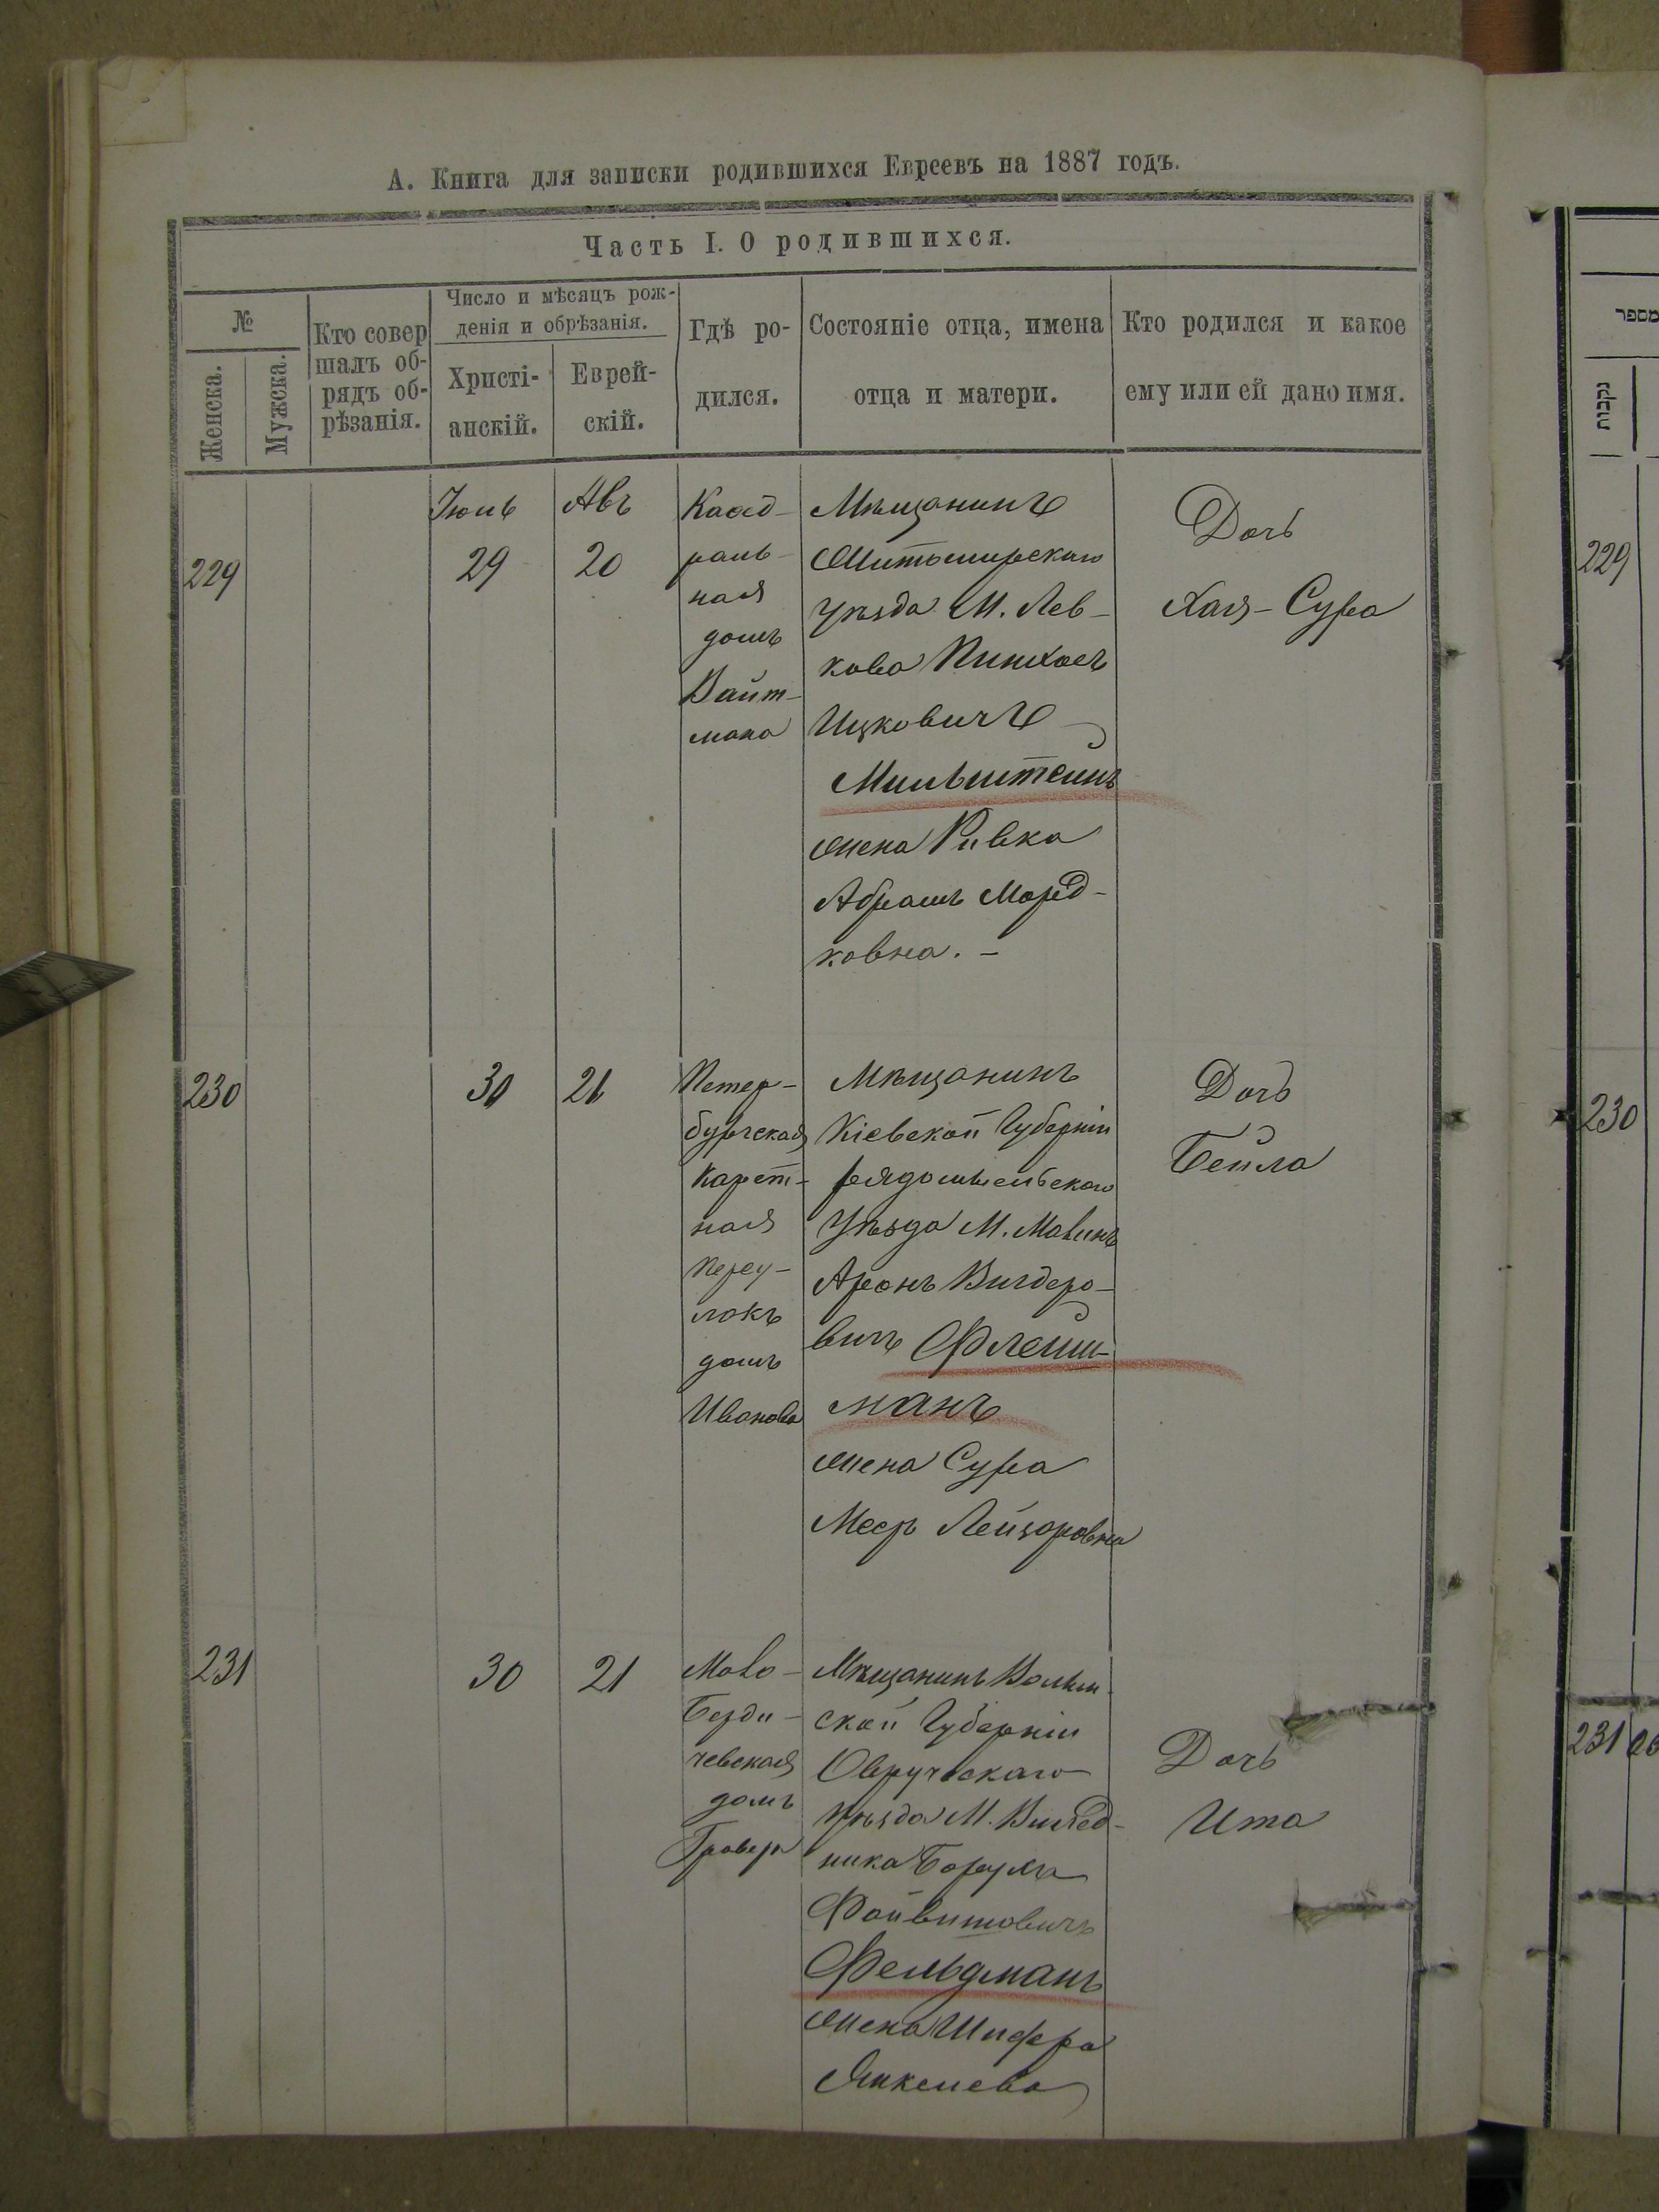 А. Книга для записки родившихся Евреевъ на 1887 годъ.
Часть I. О родившихся.
№
Женска.
Мужска.
Кто совер
шалъ об-
рядъ об-
рѣзанія.
Число и мѣсяцъ рож-
денія и обрѣзанія.
Христі-
анскій.
Еврей-
скій.
Гдѣ ро-
дился.
Состояніе отца, имена
отца и матери.
Кто родился и какое
ему или ей дано имя.
229
Іюнь
29
Авъ
20
раль-
ная
домъ
Вайт-
мана
Мѣщанинъ
Житомирскаго
уѣзда М. Лев-
кова Пинхосъ
Ицковичъ
Мильштейнъ
жена Ривка
Абрамъ Морд-
ковна. –
Дочь
Хая-Сура
230
30
21
Петер-
бургская
Карет-
ная
Переу-
локъ
домъ
Иванова
Мѣщанинъ
Кіевской Губерніи
Уѣзда М. Малинъ
Аронъ Вигдоро-
вичъ Флейш-
манъ
жена Сура
Лейзоровна
Дочь
Бейла
231
30
21
Ново-
Берди-
чевская
домъ
Мѣщанинъ Волын
ской Губерніи
Овручскаго
уѣзда М. Виляд-
ника Борухъ
Фельдманъ
жена Шифра
Янкелева
Дочь
Ита
מספר
נקבות
229
230
231